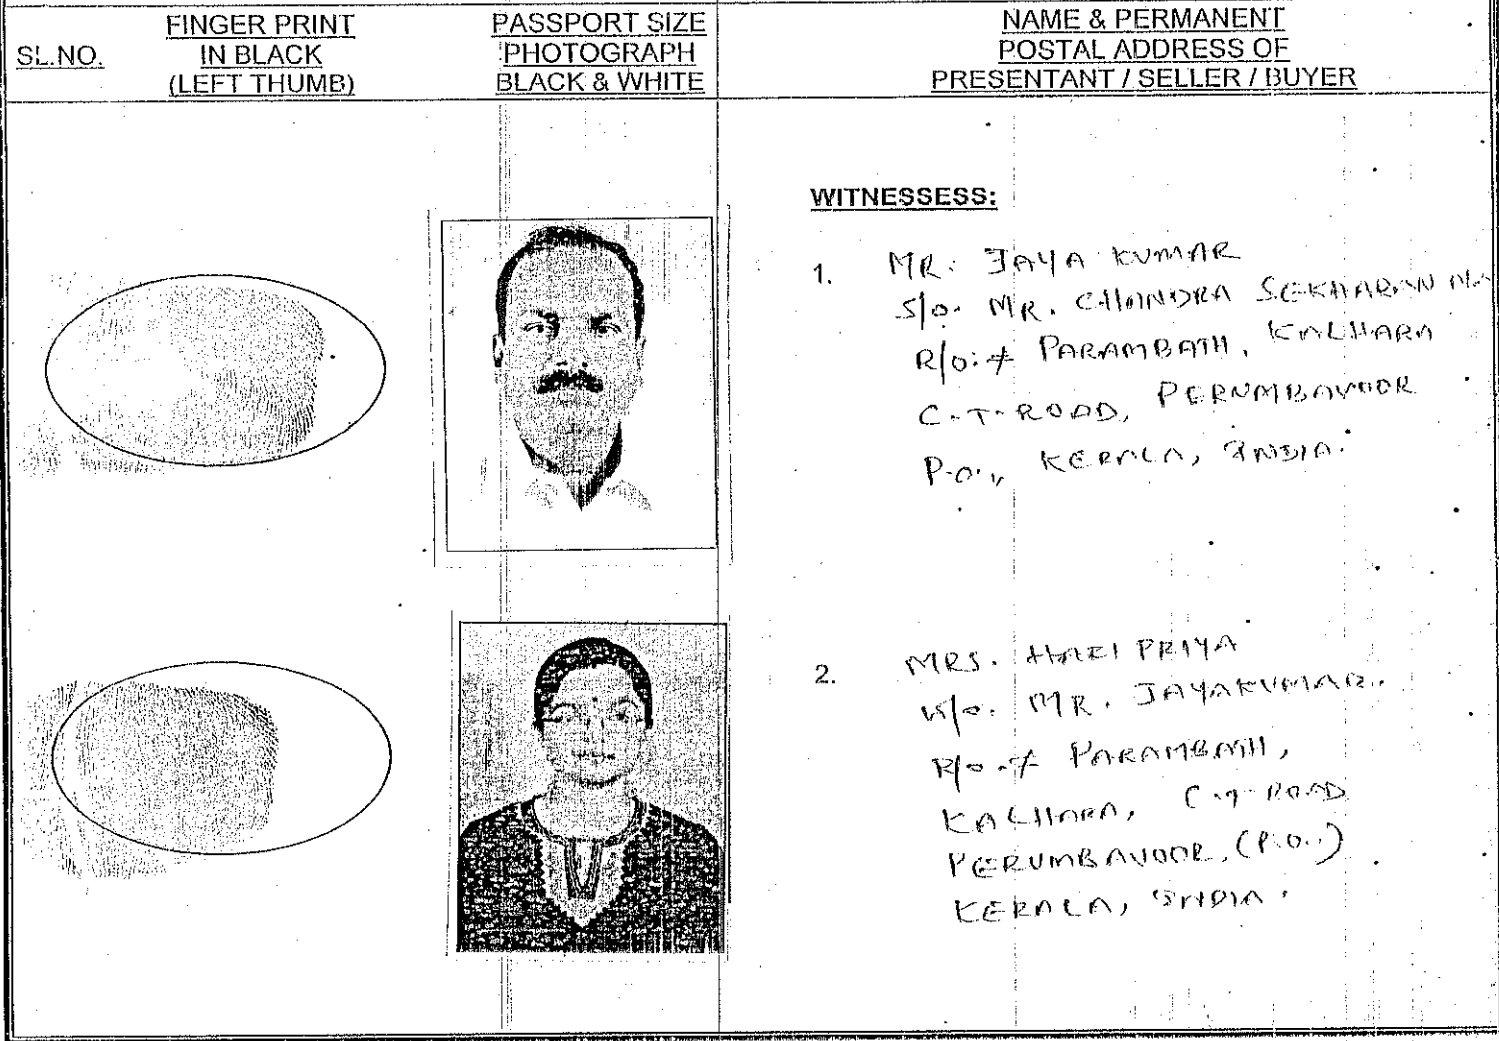 SL.NO.
FINGER PRINT
IN BLACK
(LEFT THUMB)
PASSPORT SIZE
PHOTOGRAPH
BLACK & WHITE
NAME & PERMANENT
POSTAL ADDRESS OF
PRESENTANT / SELLER / BUYER
WITNESSESS:
1. MR. JAYA KUMAR
S/o. MR. CHANDRA SEKHARAN
R/o: # PARAMBATH, KALHARA
C.T. ROAD, PERUMBAVOOR
P.O., KERALA, INDIA.
2. MRS. HARI PRIYA
W/o. MR. JAYAKUMAR.
R/o. # PARAMBATH,
KALHARA, C.T. ROAD
PERUMBAVOOR, (P.O.)
KERALA, INDIA.